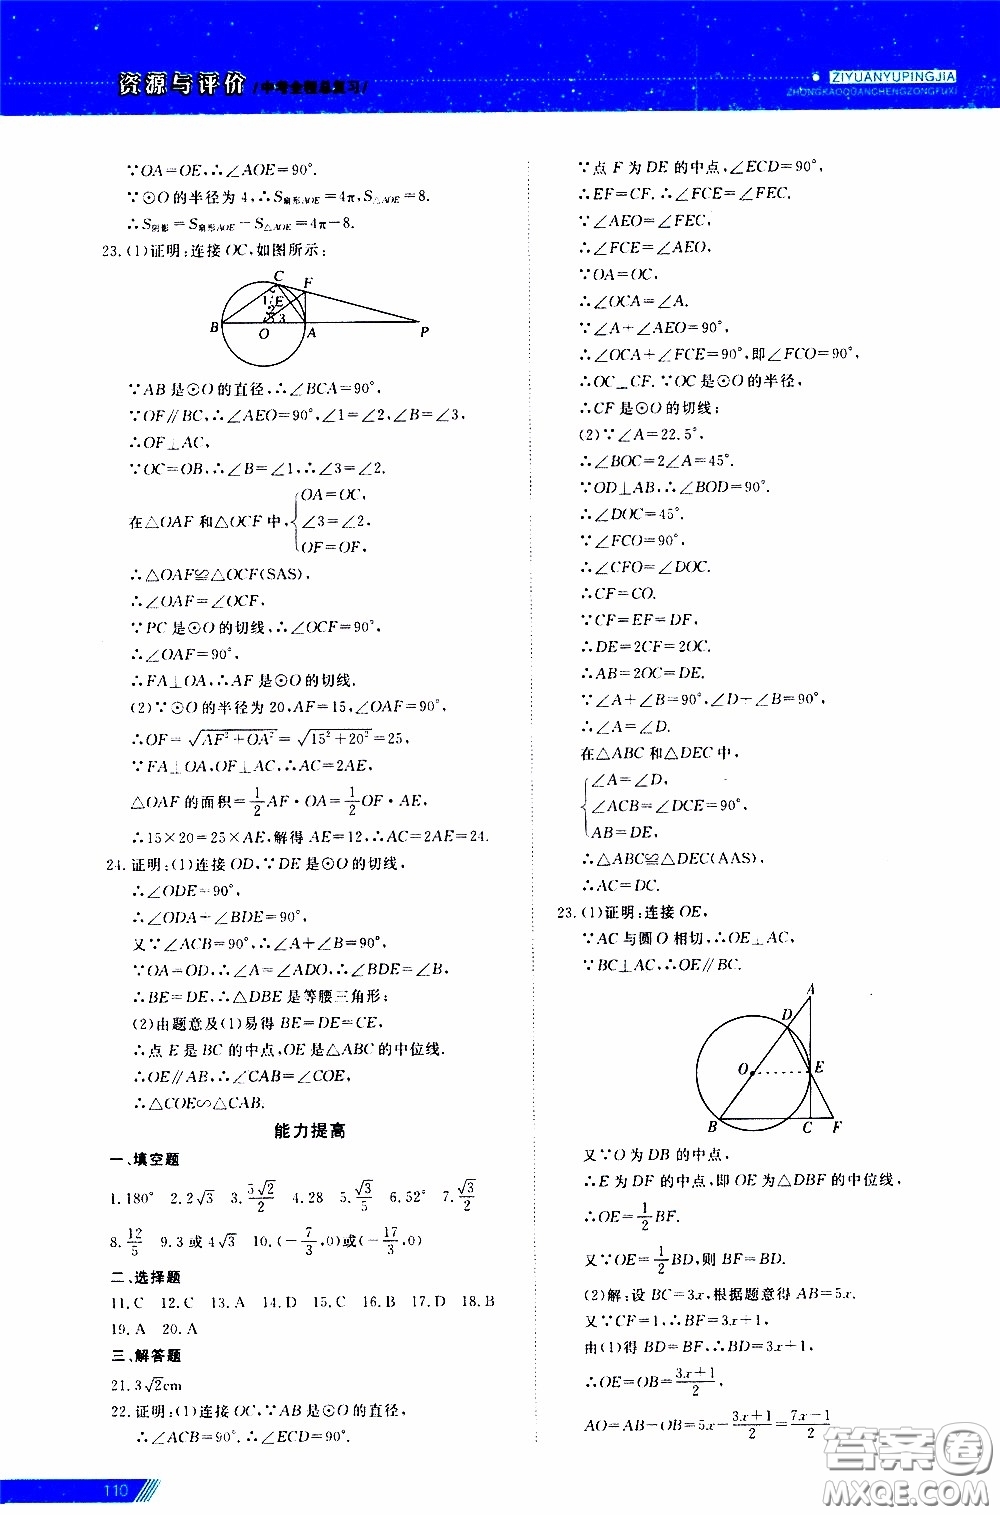 资源与评价 /中考全程总复习/
ZIYUANYUPINGJIA
ZHONGKAOQUANCHENGZONGFUXI
∵OA=OE,∴∠AOE=90°.
∵⊙O的半径为4,∴S扇形AOE=4π,S△AOE=8.
∴S阴影=S扇形AOE−S△AOE=4π−8.
23.(1)证明:连接OC,如图所示:
C F
1 E
2
3
B O A P
∵AB是⊙O的直径,∴∠BCA=90°.
∵OF∥BC,∴∠AEO=90°,∠1=∠2,∠B=∠3,
∴OF⊥AC,
∵OC=OB,∴∠B=∠1,∴∠3=∠2.
在△OAF和△OCF中,{OA=OC,
∠3=∠2,
OF=OF,
∴△OAF≌△OCF(SAS),
∴∠OAF=∠OCF,
∵PC是⊙O的切线,∴∠OCF=90°,
∴∠OAF=90°,
∴FA⊥OA,∴AF是⊙O的切线.
(2)∵⊙O的半径为20,AF=15,∠OAF=90°,
∴OF=√(AF²+OA²)=√(15²+20²)=25,
∵FA⊥OA,OF⊥AC,∴AC=2AE,
△OAF的面积=1/2 AF·OA=1/2 OF·AE,
∴15×20=25×AE,解得AE=12,∴AC=2AE=24.
24.证明:(1)连接OD,∵DE是⊙O的切线,
∴∠ODE=90°,
∴∠ODA+∠BDE=90°,
又∵∠ACB=90°,∴∠A+∠B=90°,
∵OA=OD,∴∠A=∠ADO,∴∠BDE=∠B,
∴BE=DE,∴△DBE是等腰三角形;
(2)由题意及(1)易得BE=DE=CE,
∴点E是BC的中点,OE是△ABC的中位线.
∴OE∥AB,∴∠CAB=∠COE,
∴△COE∽△CAB.
能力提高
一、填空题
1.180° 2.2√3 3.5√2/2 4.28 5.√3/5 6.52° 7.√3/2
8.12/5 9.3或4√3 10.(−7/3,0)或(−17/3,0)
二、选择题
11.C 12.C 13.A 14.D 15.C 16.B 17.D 18.B
19.A 20.A
三、解答题
21.3√2cm
22.证明:(1)连接OC,∵AB是⊙O的直径,
∴∠ACB=90°.∴∠ECD=90°.
∵点F为DE的中点,∠ECD=90°,
∴EF=CF.∴∠FCE=∠FEC.
∵∠AEO=∠FEC,
∴∠FCE=∠AEO,
∵OA=OC,
∴∠OCA=∠A.
∵∠A+∠AEO=90°,
∴∠OCA+∠FCE=90°,即∠FCO=90°,
∴OC⊥CF.∵OC是⊙O的半径,
∴CF是⊙O的切线;
(2)∵∠A=22.5°,
∴∠BOC=2∠A=45°.
∵OD⊥AB,∴∠BOD=90°.
∴∠DOC=45°.
∵∠FCO=90°,
∴∠CFO=∠DOC.
∴CF=CO.
∵CF=EF=DF,
∴DE=2CF=2OC.
∴AB=2OC=DE.
∵∠A+∠B=90°,∠D+∠B=90°,
∴∠A=∠D.
在△ABC和△DEC中,
{∠A=∠D,
∠ACB=∠DCE=90°,
AB=DE,
∴△ABC≌△DEC(AAS),
∴AC=DC.
23.(1)证明:连接OE,
∵AC与圆O相切,∴OE⊥AC,
∵BC⊥AC,∴OE∥BC.
A
D
O E
B C F
又∵O为DB的中点,
∴E为DF的中点,即OE为△DBF的中位线,
∴OE=1/2 BF.
又∵OE=1/2 BD,则BF=BD.
(2)解:设BC=3x,根据题意得AB=5x.
又∵CF=1,∴BF=3x+1,
由(1)得BD=BF,∴BD=3x+1,
∴OE=OB=(3x+1)/2,
AO=AB−OB=5x−(3x+1)/2=(7x−1)/2
110
答案圈
MXQE.COM